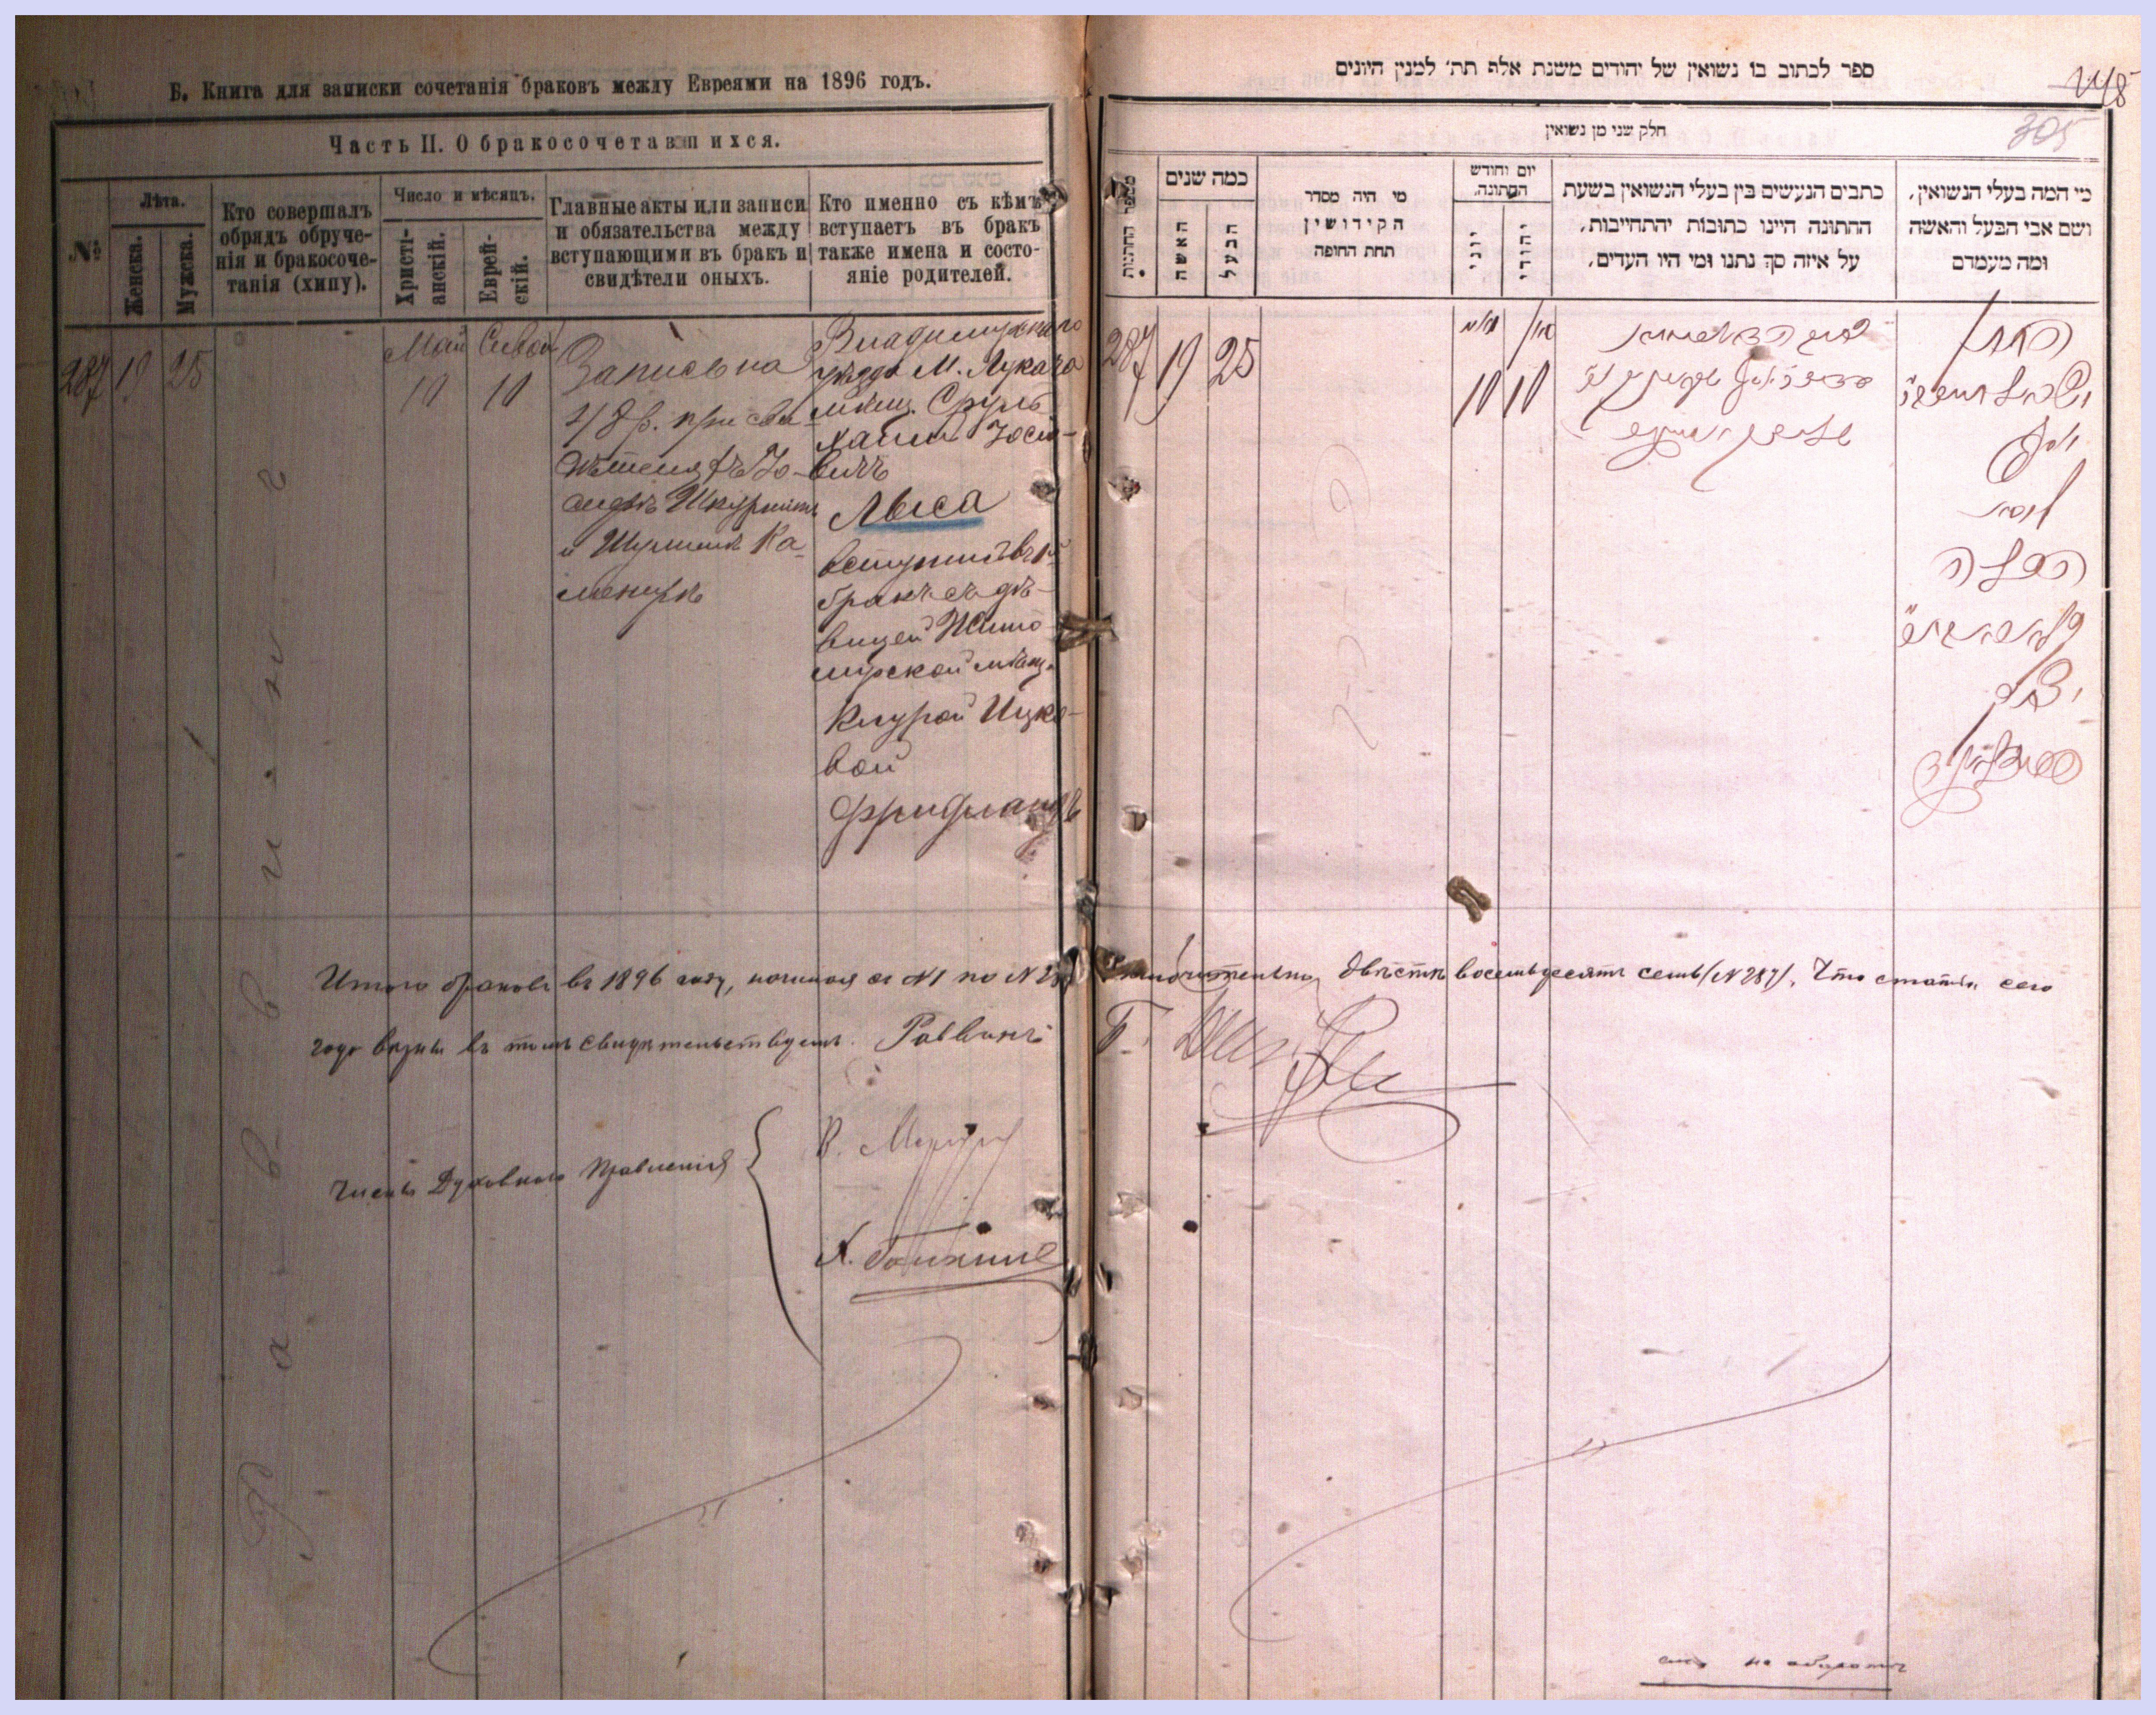 Б. Книга для записки сочетанія браковъ между Евреями на 1896 годъ.
Часть II. О бракосочетавшихся.
№
Лѣта.
Женска.
Мужска.
Кто совершалъ
обрядъ обруче-
нія и бракосоче-
танія (хипу).
Число и мѣсяцъ.
Христі-
анскій.
Еврей-
скій.
Главные акты или записи
и обязательства между
вступающими въ бракъ и
свидѣтели оныхъ.
Кто именно съ кѣмъ
вступаетъ въ бракъ
также имена и состо-
яніе родителей.
287
19
25
Раввинъ
Май
10
Сивон
10
Запись на
48 р. при сви-
дѣтеляхъ Ио-
сифъ
и Шулимъ Ка-
мениръ
Владимірскаго
уѣзда М. Лукача
мѣщ. Сруль
Хаимъ Иосіо-
вичъ
Лыса
вступилъ въ 1й
бракъ съ дѣ-
вицей Жито
мірской мѣщ.
Клурой Ицко-
вой
Фридландъ
Итого браковъ въ 1896 году, начиная съ №1 по № 287 включительно двѣсти восемьдесятъ семь (№ 287). Что статьи сего
года вѣрны въ томъ свидѣтельствуемъ. Раввинъ
Члены Духовнаго Правленія
ספר לכתוב בו נשואין של יהודים משנת אלף תת׳ למנין היונים
305
חלק שני מן נשואין
מספר החתנות
כמה שנים
האשה
הבעל
מי היה מסדר
הקידושין
תחת החופה
יום וחודש
החתונה.
יוני
יהודי
כתבים הנעשים בין בעלי הנשואין בשעת
החתונה היינו כתובות והתחייבות,
על איזה סך נתנו ומי היו העדים,
מי המה בעלי הנשואין,
ושם אבי הבעל והאשה
ומה מעמדם
287
19
25
10
10
החתן
ישראל חיים
יוסף
ליסא
הכלה
יצחק
פרידלאנד